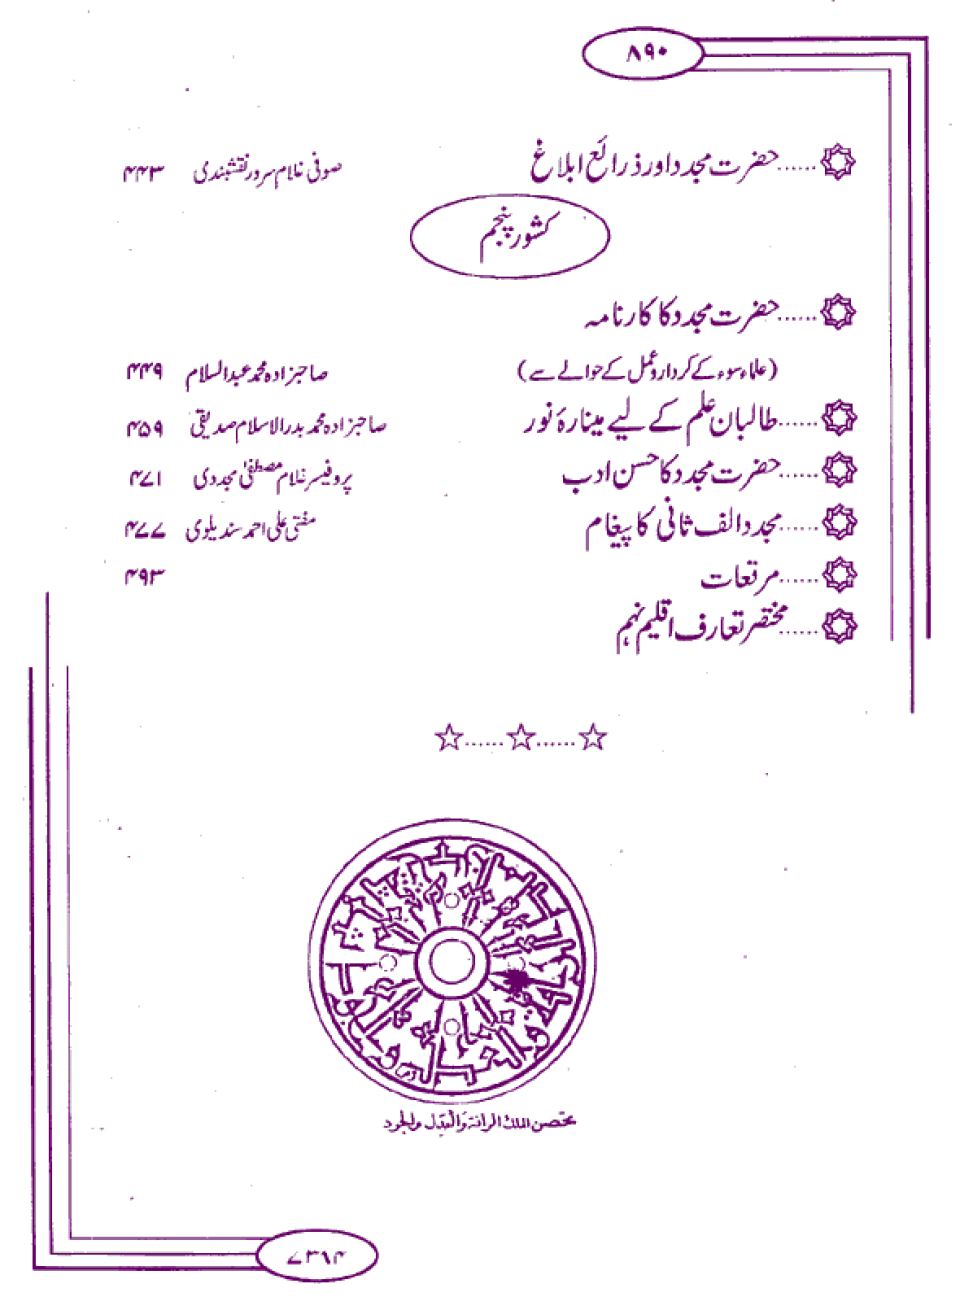 ۸۹۰
حضرت مجدد اور ذرائع ابلاغ ...... صوفی غلام سرور نقشبندی ۴۴۳
کشور پنجم
حضرت مجدد کا کارنامہ ......
(علماء سوء کے کردار و عمل کے حوالے سے) صاحبزادہ محمد عبدالسلام ۴۴۹
...... طالبان علم کے لیے مینارۂ نور صاحبزادہ محمد بدر الاسلام صدیقی ۴۵۹
...... حضرت مجدد کا حسن ادب پروفیسر غلام مصطفیٰ مجددی ۴۷۱
...... مجدد الف ثانی کا پیغام مفتی علی احمد سندیلوی ۴۷۷
...... مرقعات ۴۹۳
...... مختصر تعارف اقلیم نہم
☆......☆......☆
الملك الرافة والعدل والجود